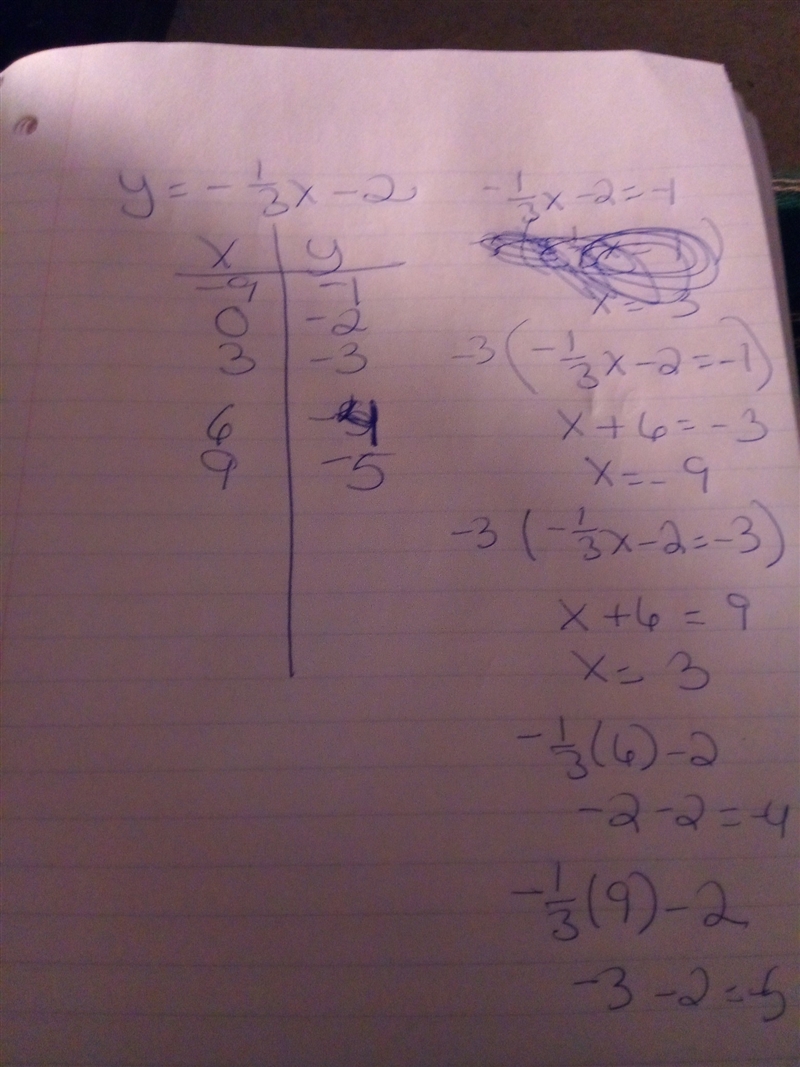 y = -1/3x - 2
x | y
-9 | -1
0 | -2
3 | -3
6 | -4
9 | -5
-1/3x - 2 = -1
x = 3
-3(-1/3x - 2 = -1)
x + 6 = -3
x = -9
-3(-1/3x - 2 = -3)
x + 6 = 9
x = 3
-1/3(6) - 2
-2 - 2 = -4
-1/3(9) - 2
-3 - 2 = -5